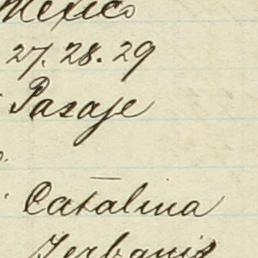 Mexico
27. 28. 29
Pasaje
Catalina